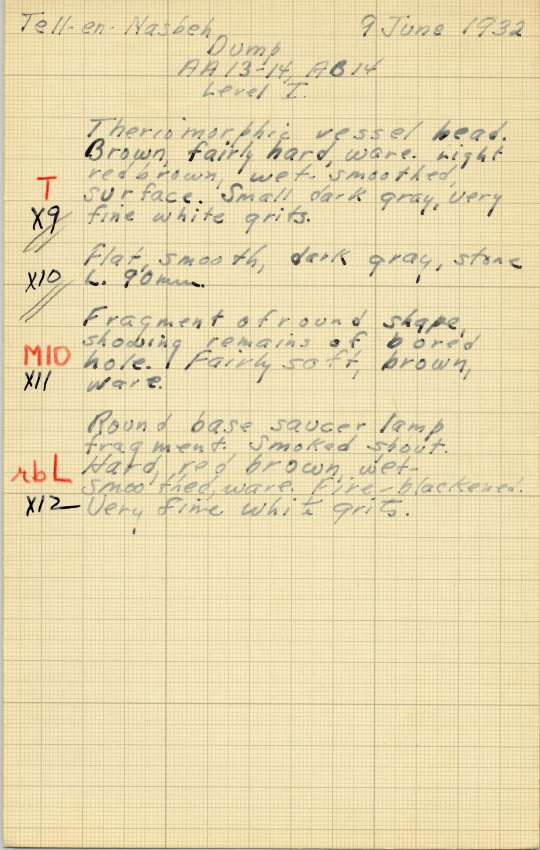 Tell-en-Nasbeh 9 June 1932
Dump
AA 13-14, AB 14
Level I.
Theriomorphic vessel head.
Brown, fairly hard, ware. Light
red brown, wet-smoothed,
T surface. Small dark gray, very
X9 fine white grits.
Flat, smooth, dark gray, stone
X10 L. 90mm.
Fragment of round shape,
showing remains of bored
M10 hole. Fairly soft, brown,
X11 ware.
Round base saucer lamp
fragment. Smoked spout.
rbL Hard, red brown, wet-
smoothed, ware. Fire-blackened.
X12 Very fine white grits.